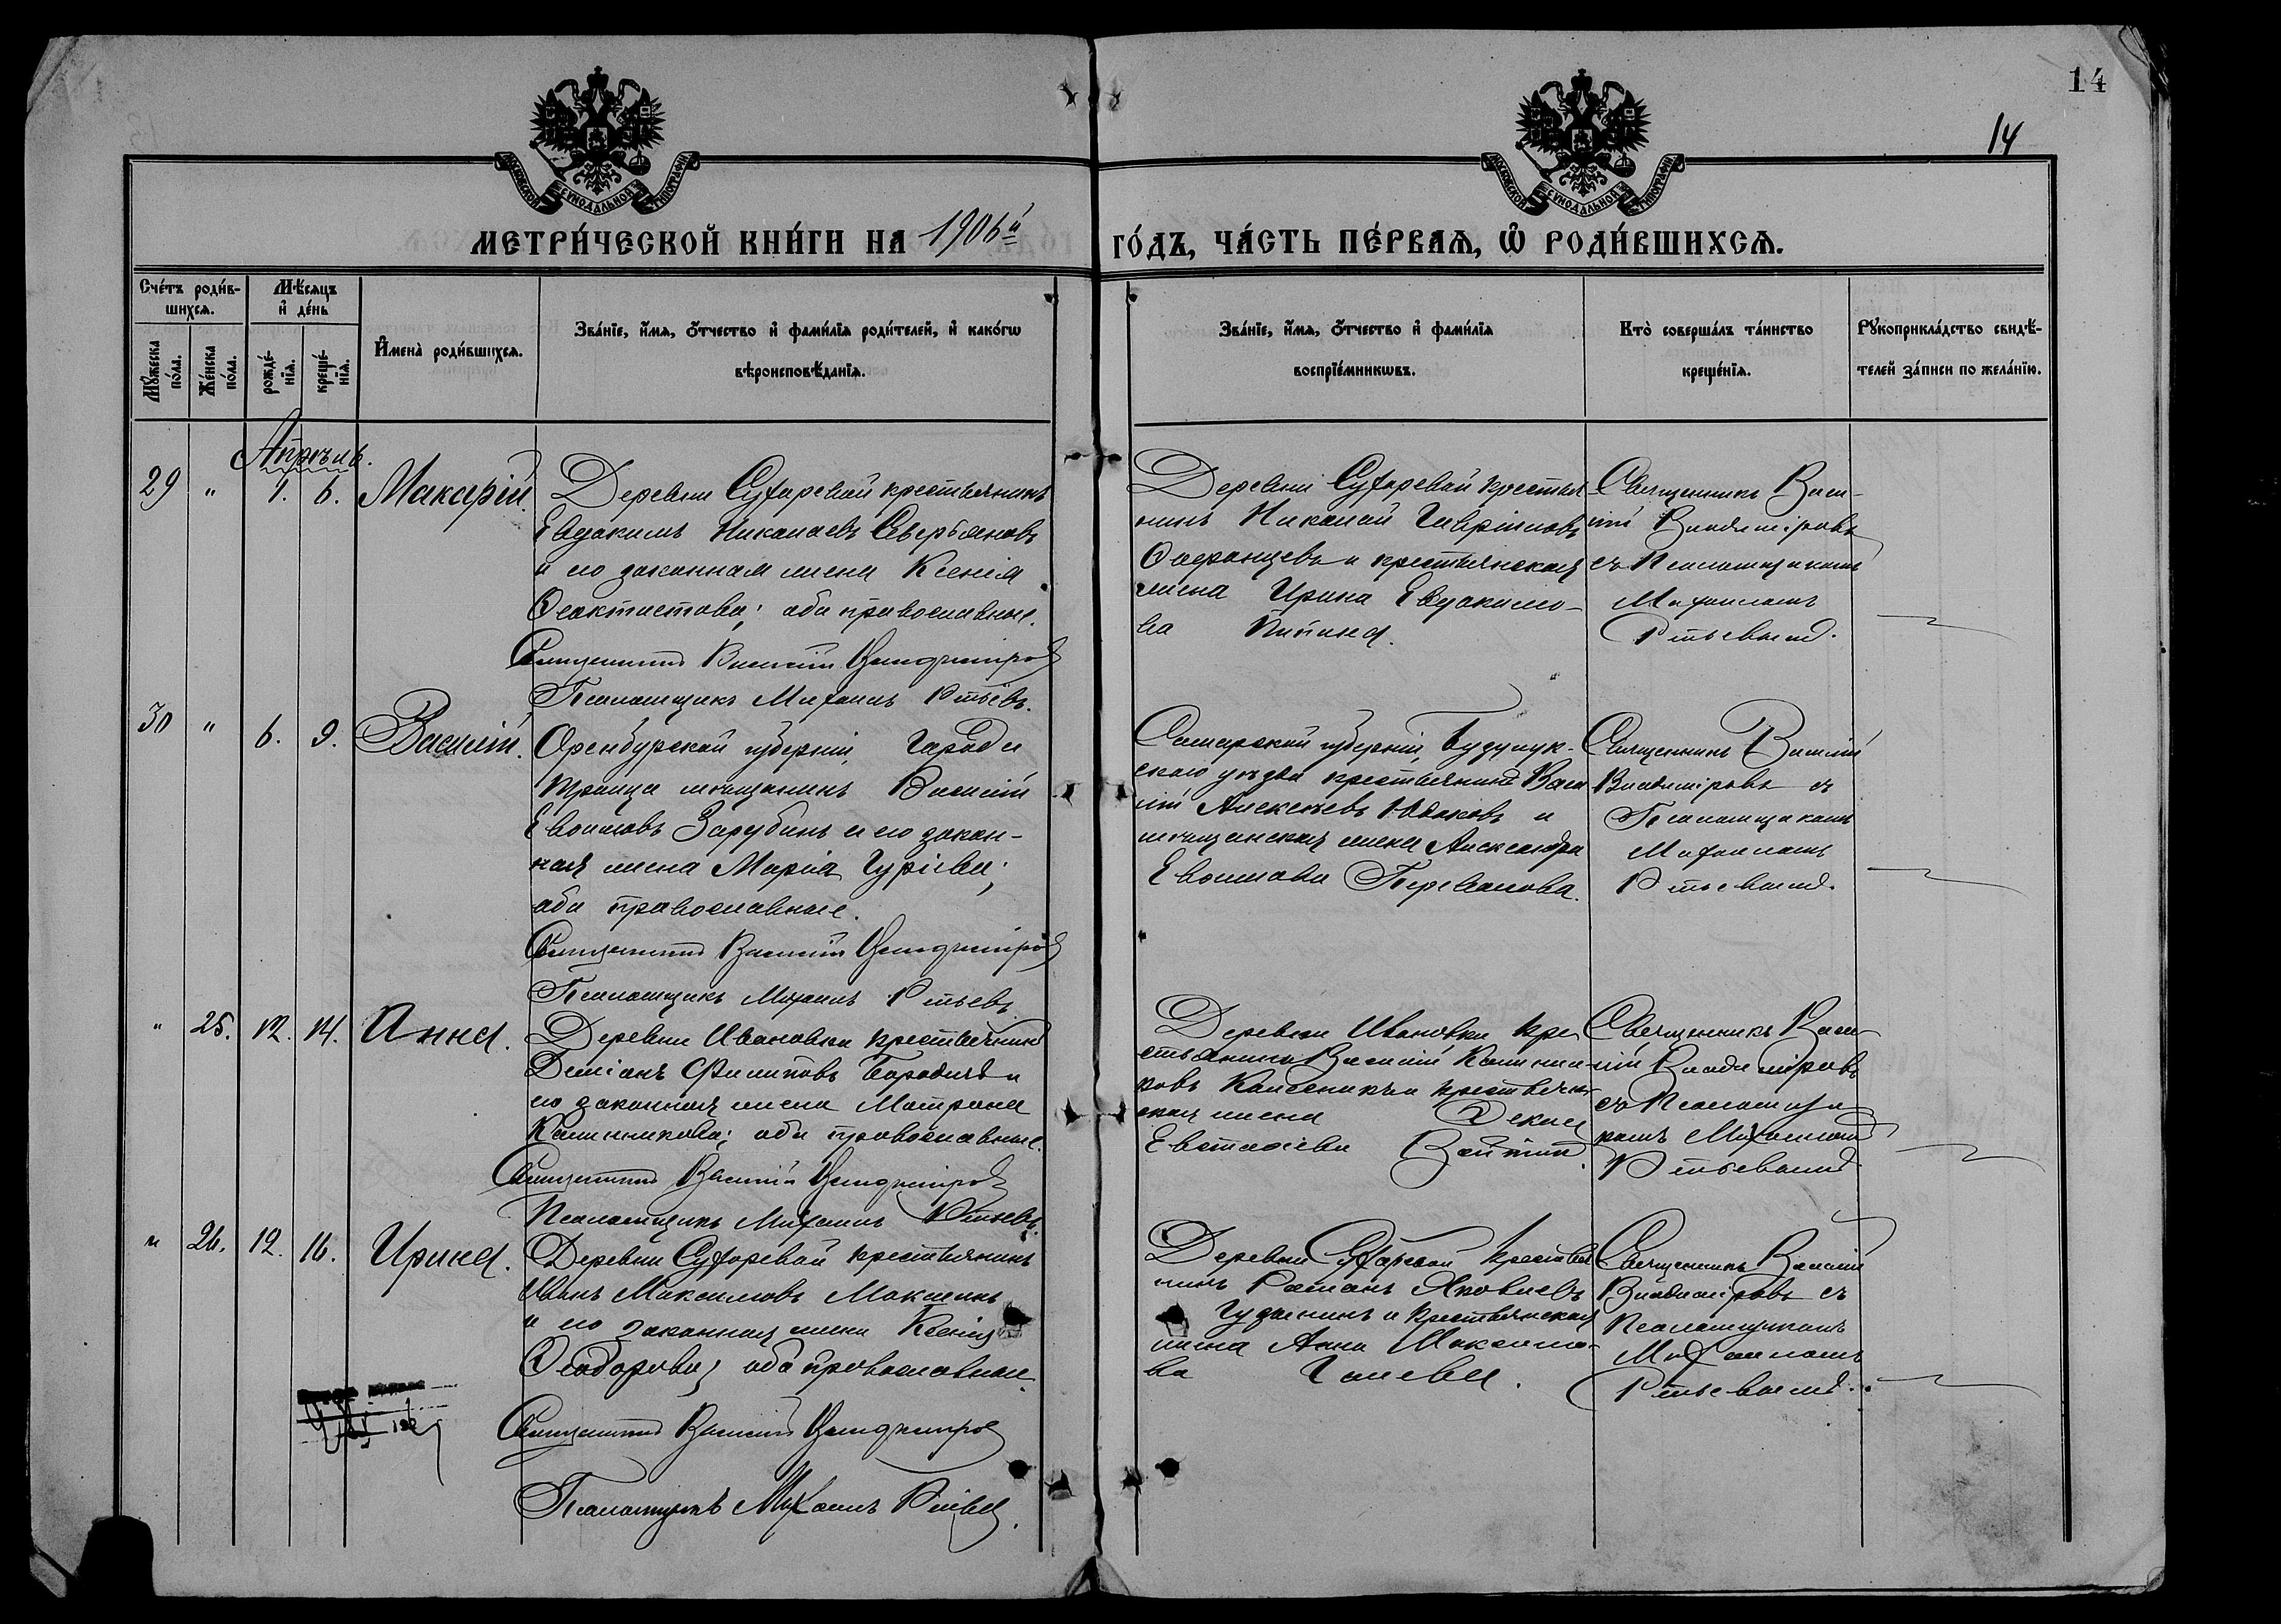 14
14
МОСКОВСКОЙ СУНОДАЛЬНОЙ ТИПОГРАФІИ
МОСКОВСКОЙ СУНОДАЛЬНОЙ ТИПОГРАФІИ
МЕТРИ́ЧЕСКОЙ КНИ́ГИ НА 1906й
ГО́ДЪ, ЧА́СТЬ ПЕ́РВАѦ, Ѡ РОДИ́ВШИХСѦ.
Сче́тъ роди́в-
шихсѧ.
Мꙋ́жеска по́ла.
Же́нска по́ла.
Мѣ́сѧцъ
и҆ де́нь
рожде́-
нїѧ.
креще́-
нїѧ.
И҆мена̀ роди́вшихсѧ.
Зва́нїе, и҆́мѧ, ѻ҆́тчество и҆ фами́лїѧ роди́телей, и҆ како́гѡ
вѣроисповѣ́данїѧ.
Зва́нїе, и҆́мѧ, ѻ҆́тчество и҆ фами́лїѧ
воспрїе́мникѡвъ.
Кто̀ соверша́лъ та́инство
креще́нїѧ.
Рꙋкоприкла́дство свидѣ́-
телей за́писи по жела́нїю.
Апрѣль.
29 " 1. 6. Макарій.
Деревни Сухаревой крестьянинъ
Евдокимъ Николаевъ Севервяновъ
и его законная жена Ксенія
Ѳеоктистова; оба православные.
Священникъ Василій Владиміровъ
Псаломщикъ Михаилъ
Деревни Сухаревой крестья-
нинъ Николай Гавріиловъ
и крестьянская
жена Ирина Евдокимо-
ва
Священникъ Васи-
лій Владиміровъ
съ Псаломщикомъ
Михаиломъ
30 " 6. 9. Василій.
Оренбургской губерніи, города
Троицка мѣщанинъ Василій
Евоиловъ Зарубинъ и его закон-
ная жена Марія Гуріева;
оба православные.
Священникъ Василій Владиміровъ
Псаломщикъ Михаилъ
Самарской губерніи, Бузулук-
скаго уѣзда крестьянинъ Васи
лій Алексѣевъ и
мѣщанская жена Александра
Священникъ Василій
Владиміровъ съ
Псаломщикомъ
Михаиломъ
" 25. 12. 14. Анна.
Деревни Ивановки крестьянинъ
Даміанъ Филиповъ Бородичъ и
его законная жена Матрона
Калинникова; оба православные.
Священникъ Василій Владиміровъ
Псаломщикъ Михаилъ
Деревни Ивановки кре
стьянинъ Василій Калинни
ковъ и крестьян-
ская жена Ѳекла
Евстаѳіева
Священникъ Васи
лій Владиміровъ
съ Псаломщи
комъ Михаиломъ
" 26. 12. 16. Ирина.
Деревни Сухаревой крестьянинъ
Иванъ Максимовъ
и его законная жена Ксенія
Ѳеодорова; оба православные.
Священникъ Василій Владиміровъ
Псаломщикъ Михаилъ
Деревни Сухаревой крестья
нинъ Романъ Яковлевъ
и крестьянская
жена Анна Максимо-
ва
Священникъ Василій
Владиміровъ съ
Псаломщикомъ
Михаиломъ